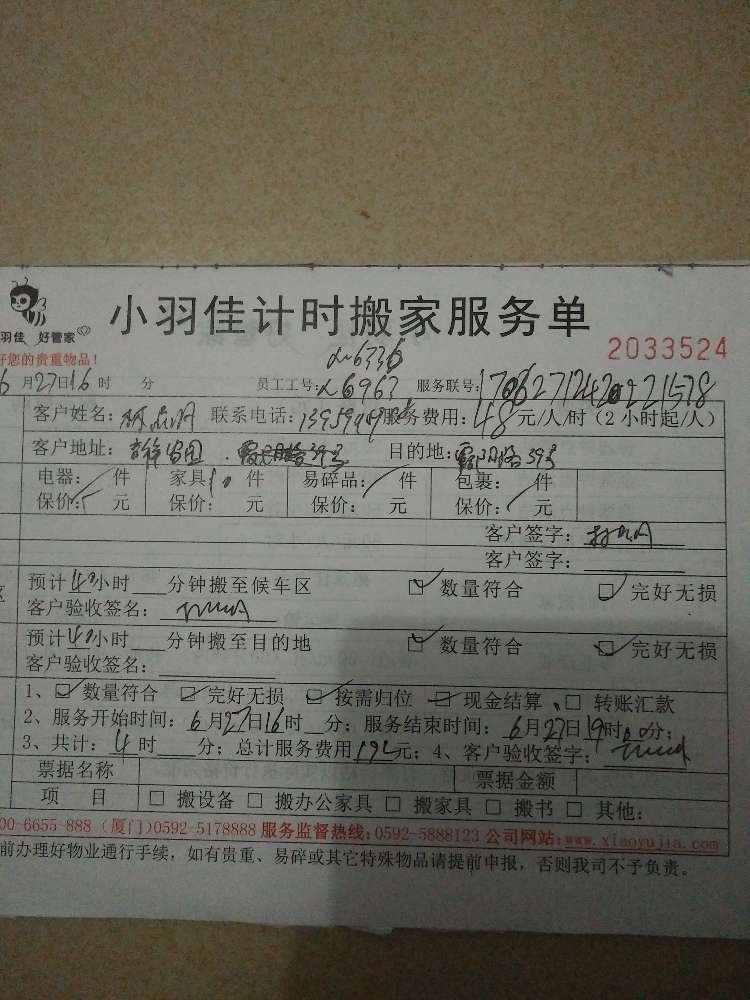 小羽佳计时搬家服务单
羽佳 好管家
2033524
好您的贵重物品！
6336
6月27日16时 分 员工工号：6963 服务联号：
客户姓名： 联系电话： 服务费用：48元/人/时（2小时起/人）
客户地址： 目的地：
电器： 件 家具 件 易碎品： 件 包裹： 件
保价： 元 保价： 元 保价： 元 保价： 元
客户签字：
客户签字：
区 预计 小时 分钟搬至候车区 数量符合 完好无损
客户验收签名：
预计 小时 分钟搬至目的地 数量符合 完好无损
客户验收签名：
1、 数量符合 完好无损 按需归位 现金结算、 转账汇款
2、服务开始时间：6月27日16时 分；服务结束时间：6月27日19时 分；
3、共计：4时 分；总计服务费用192元；4、客户验收签字：
票据名称 票据金额
项 目 □ 搬设备 □ 搬办公家具 □ 搬家具 □ 搬书 □ 其他：
00-6655-888（厦门）0592-5178888 服务监督热线：0592-5888123 公司网站：www.xiaoyujia.com
前办理好物业通行手续，如有贵重、易碎或其它特殊物品请提前申报，否则我司不予负责。